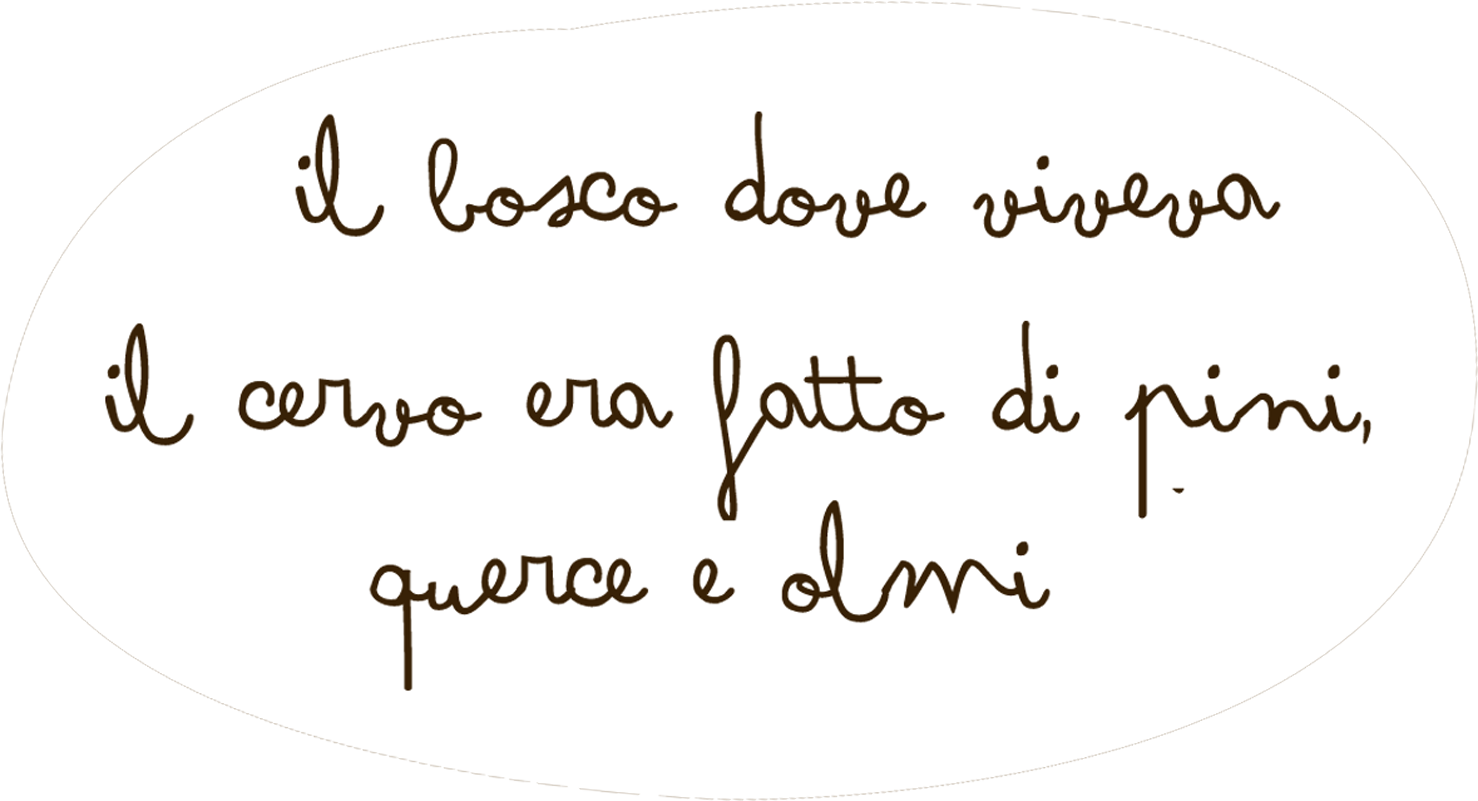 il bosco dove viveva
il cervo era fatto di pini,
querce e olmi